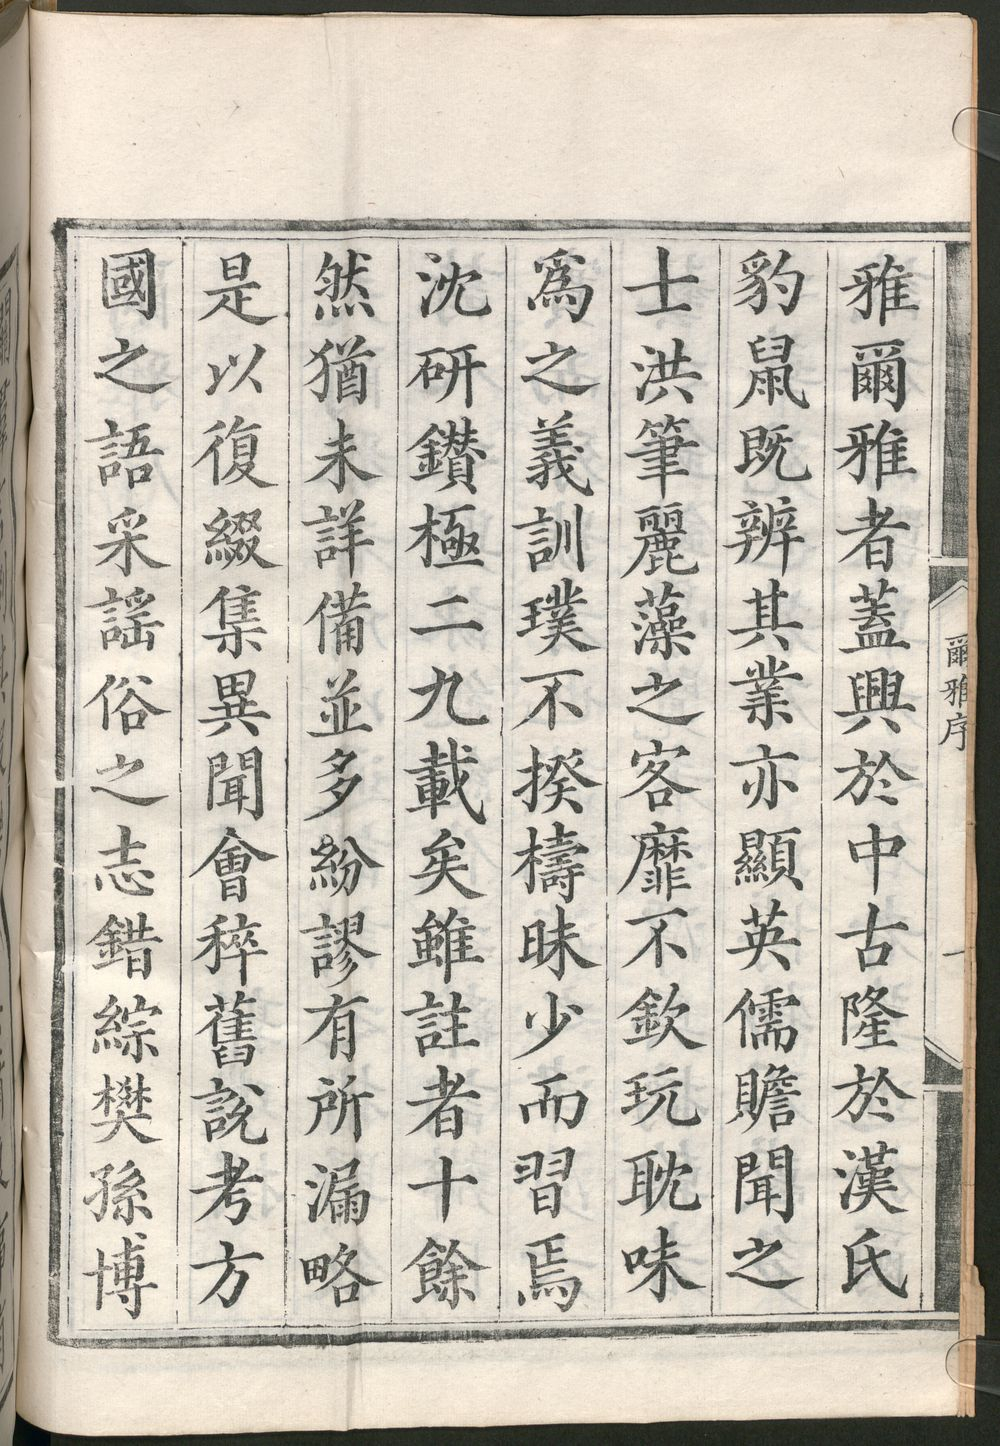 雅爾雅者蓋興於中古隆於漢氏
豹鼠既辨其業亦顯英儒贍聞之
士洪筆麗藻之客靡不欽玩耽味
爲之義訓璞不揆檮昧少而習焉
沈研鑚極二九載矣雖註者十餘
然猶未詳備並多紛謬有所漏略
是以復綴集異聞會稡舊説考方
國之語采謡俗之志錯綜樊孫博
爾雅序
一